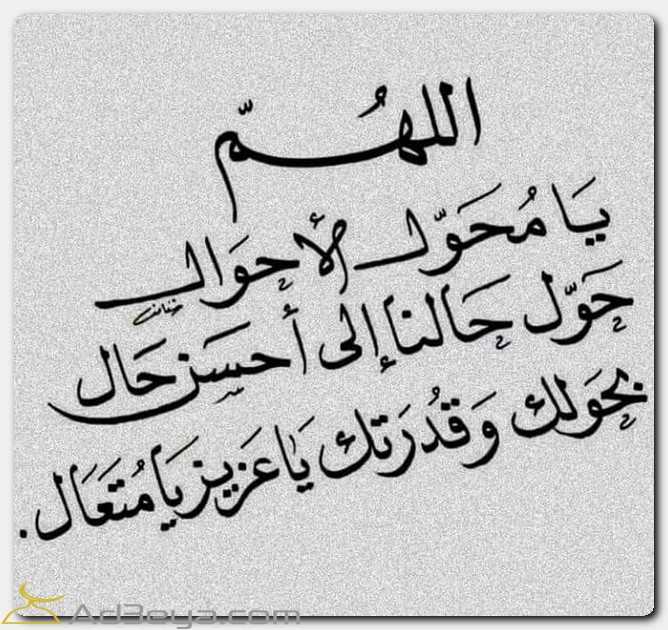 اللهُمّ
يَا مُحَوّل الأحوَال
حَوّل حَالنا إلى أحسَن حَال
بحَولك وَقدُرَتك يَا عَزيز يَا مُتعَال.
Ad3eya.com